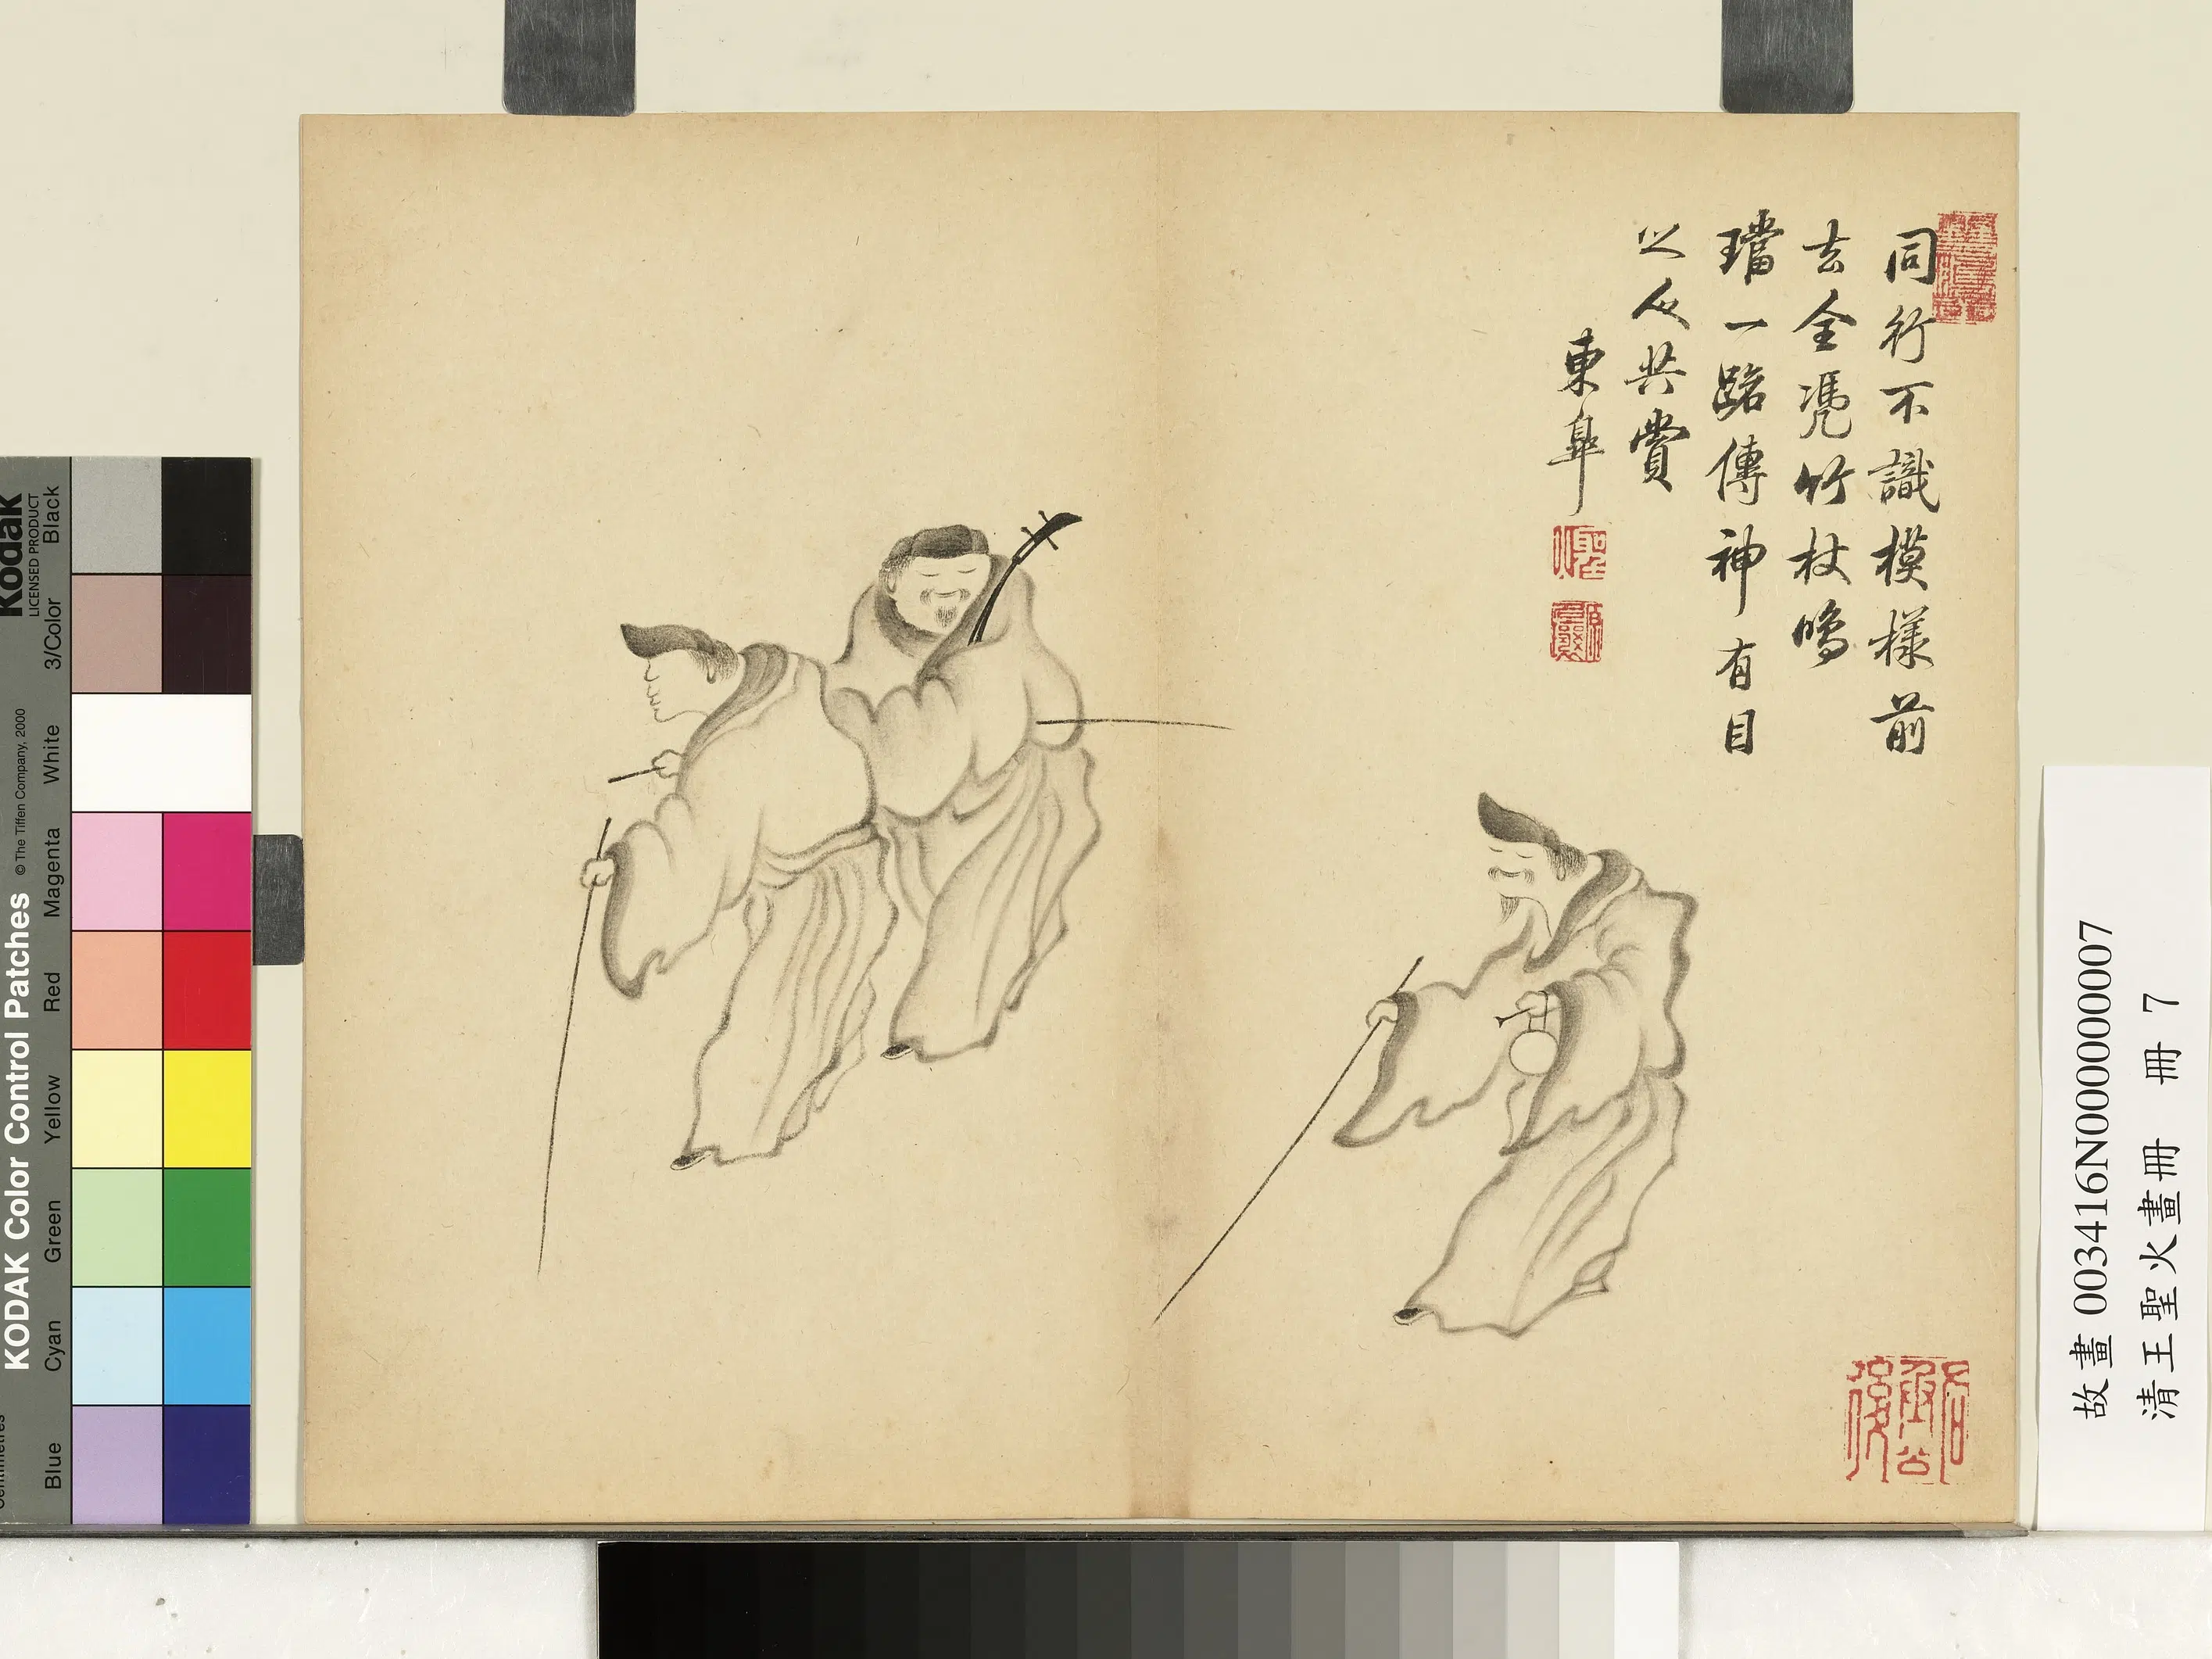 同行不識模樣前
去全凴竹杖鳴
璫一路傳神有目
之人共賞
東皐
故畫 003416N000000007
清王聖火畫冊 冊 7
Kodak
LICENSED PRODUCT
KODAK Color Control Patches
© The Tiffen Company, 2000
Black
3/Color
White
Magenta
Red
Yellow
Green
Cyan
Blue